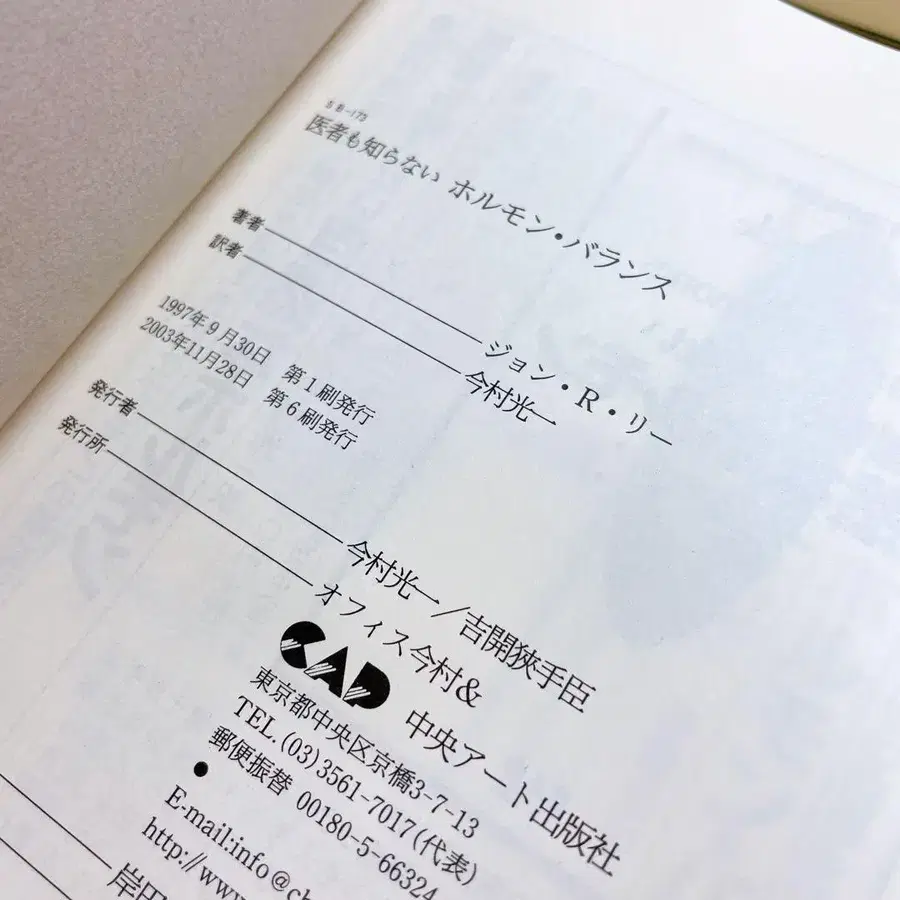 SB-173
医者も知らない ホルモン・バランス
著者 ジョン・R・リー
訳者 今村光一
1997年9月30日 第1刷発行
2003年11月28日 第6刷発行
発行者 今村光一／吉開狹手臣
発行所 オフィス今村&
CAP 中央アート出版社
東京都中央区京橋3-7-13
TEL.(03)3561-7017(代表)
郵便振替 00180-5-66324
●
E-mail:info@ch
http://www
岸田